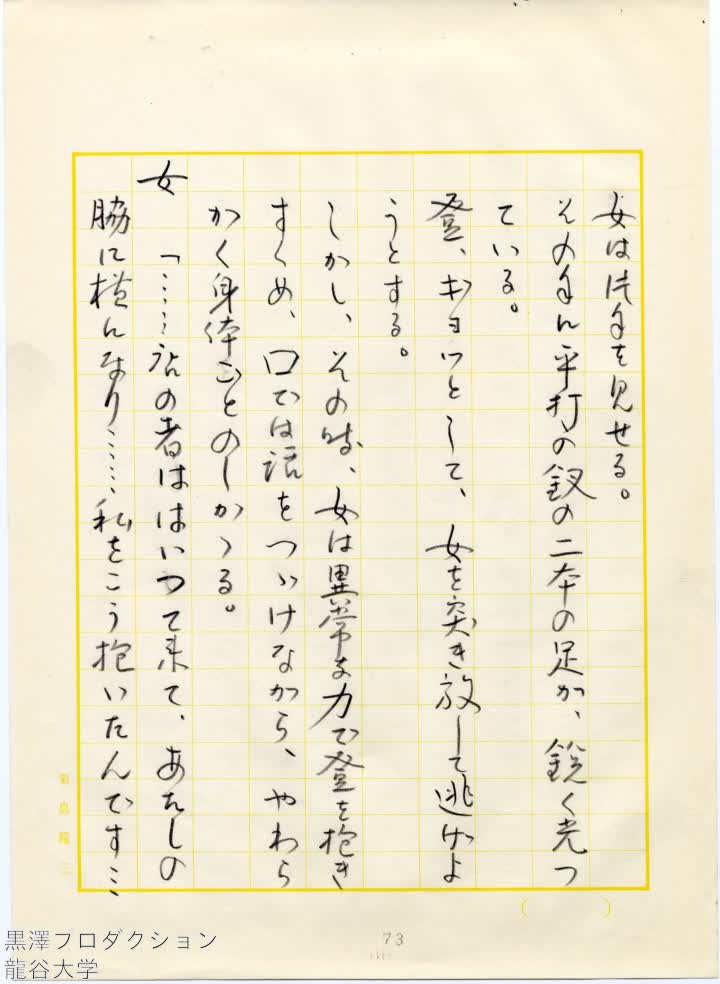 女は片手を見せる。
その手に平打の釵の二本の足が、鋭く光つ
ている。
登、ギョッとして、女を突き放して逃げよ
うとする。
しかし、その時、女は異常な力で登を抱き
すくめ、口では話をつゞけながら、やわら
かく身体ごとのしかゝる。
女「……店の者はは いつて来て、あたしの
脇に横になり……、私をこう抱いたんです…
菊島隆三
( )
73
黒澤プロダクション
龍谷大学